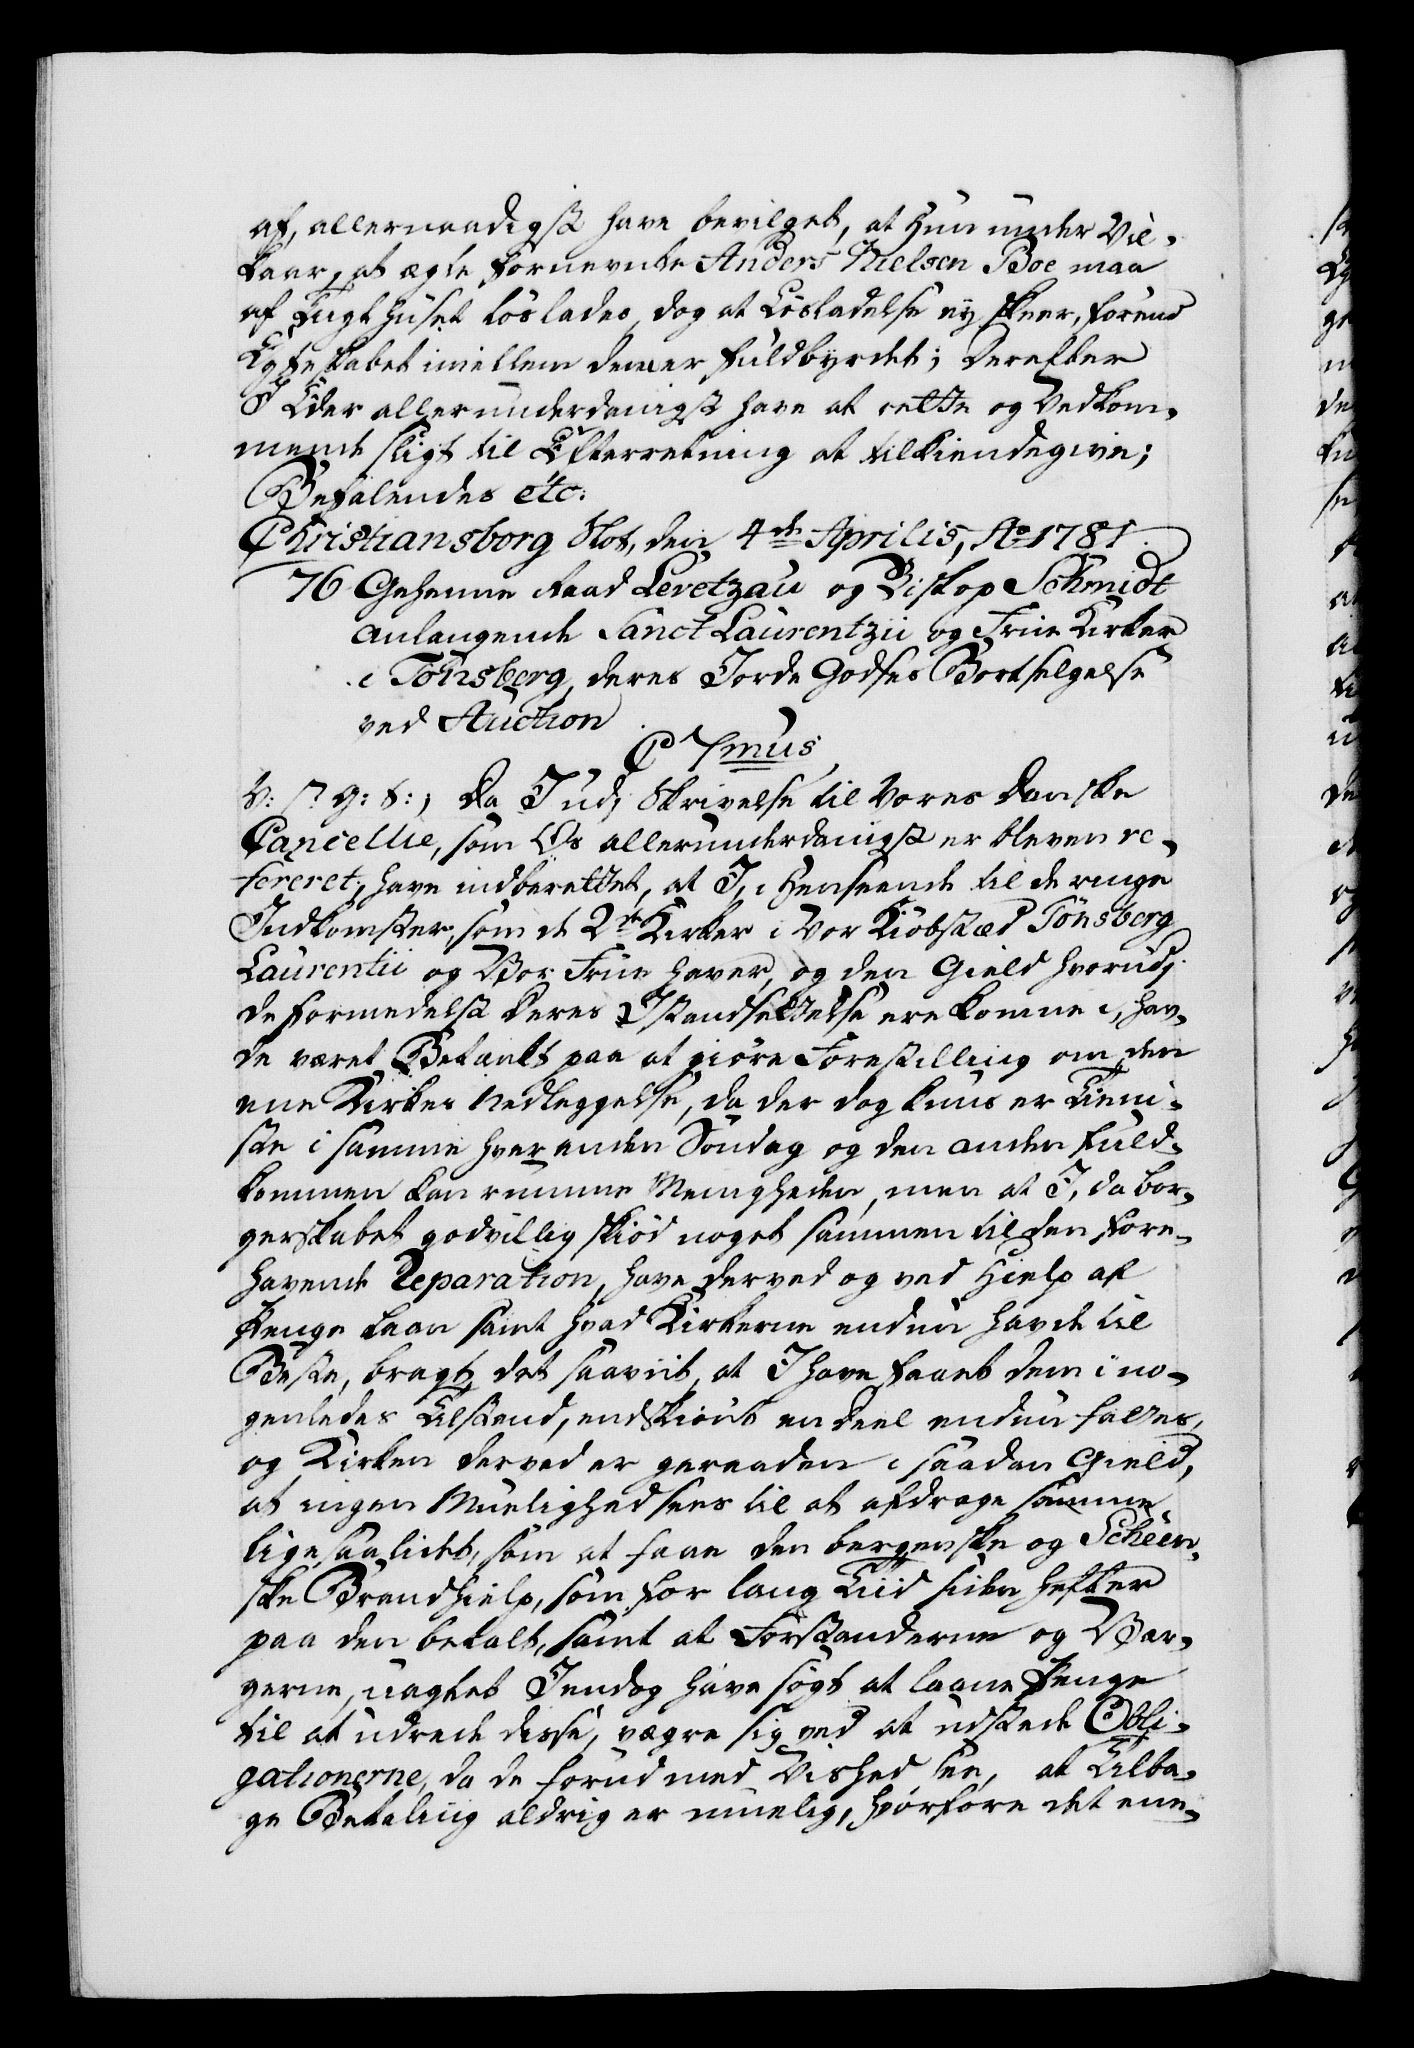 af, allernaadigst have bevilget, at Hun under Vil-
kaar, at ægte fornevnte Anders Nielsen Boe maa
af Tugthuset löslades, dog at Lösladelse ey skeer, forend
Egteskabet imellem dem er fuldbyrdet; Derefter
I Eder allerunderdanigst have at rette og Vedkom-
mende sligt til Efterretning at tilkiendegive;
Befalendes etc:
Christiansborg Slot, den 4de Aprilis, Ao 1781.
76 Geheime Raad Levetzau og Biskop Schmidt
anlangende Sanct Laurentzii og Frue Kirker
i Tönsberg, deres Jorde Godses Bortselgelse
ved Auction
C 7mus
V: S: G: T:, Da I udj Skrivelse til Vores Danske
Cancellie, som Os allerunderdanigst er bleven re-
fereret, have indberettet, at I, i Henseende til de ringe
Indkomster, som de 2de Kirker i Vor Kiöbstæd Tönsberg
Laurentii og Vor Frue haver, og den Gield hvorudj
de formedelst deres Istandsettelse ere komne i, hav-
de været Betænkt paa at giöre Forestilling om den
ene Kirkes Nedleggelse, da der dog kuns er Tieni-
ste i samme hver anden Söndag og den anden fuld-
kommen kan rumme Menigheden, men at I, da bor-
gerskabet godvillig skiöd noget sammen til den fore-
havende Reparation, have derved og ved Hielp af
Penge Laan samt hvad Kirkerne endnu havde til
Beste, bragt det saavit, at I have faaet dem i no-
genledes Tilstand, endskiönt en deel endnu fattes,
og Kirken derved er geraaden i saadan Gield,
at ingen Muelighed sees til at afdrage samme
ligesaalidt, som at faae den bergenske og Scheen-
ske Brandhielp, som for lang Tiid siden hefter
paa den betalt, samt at Forstanderne og Bor-
gerne, uagtet I endog have sögt at laane Penge
til at udrede disse, vægre sig ved at udstede Obli-
gationerne, da de forud med Vished see, at Tilba-
ge Betaling aldrig er muelig, hvorfore det ene-